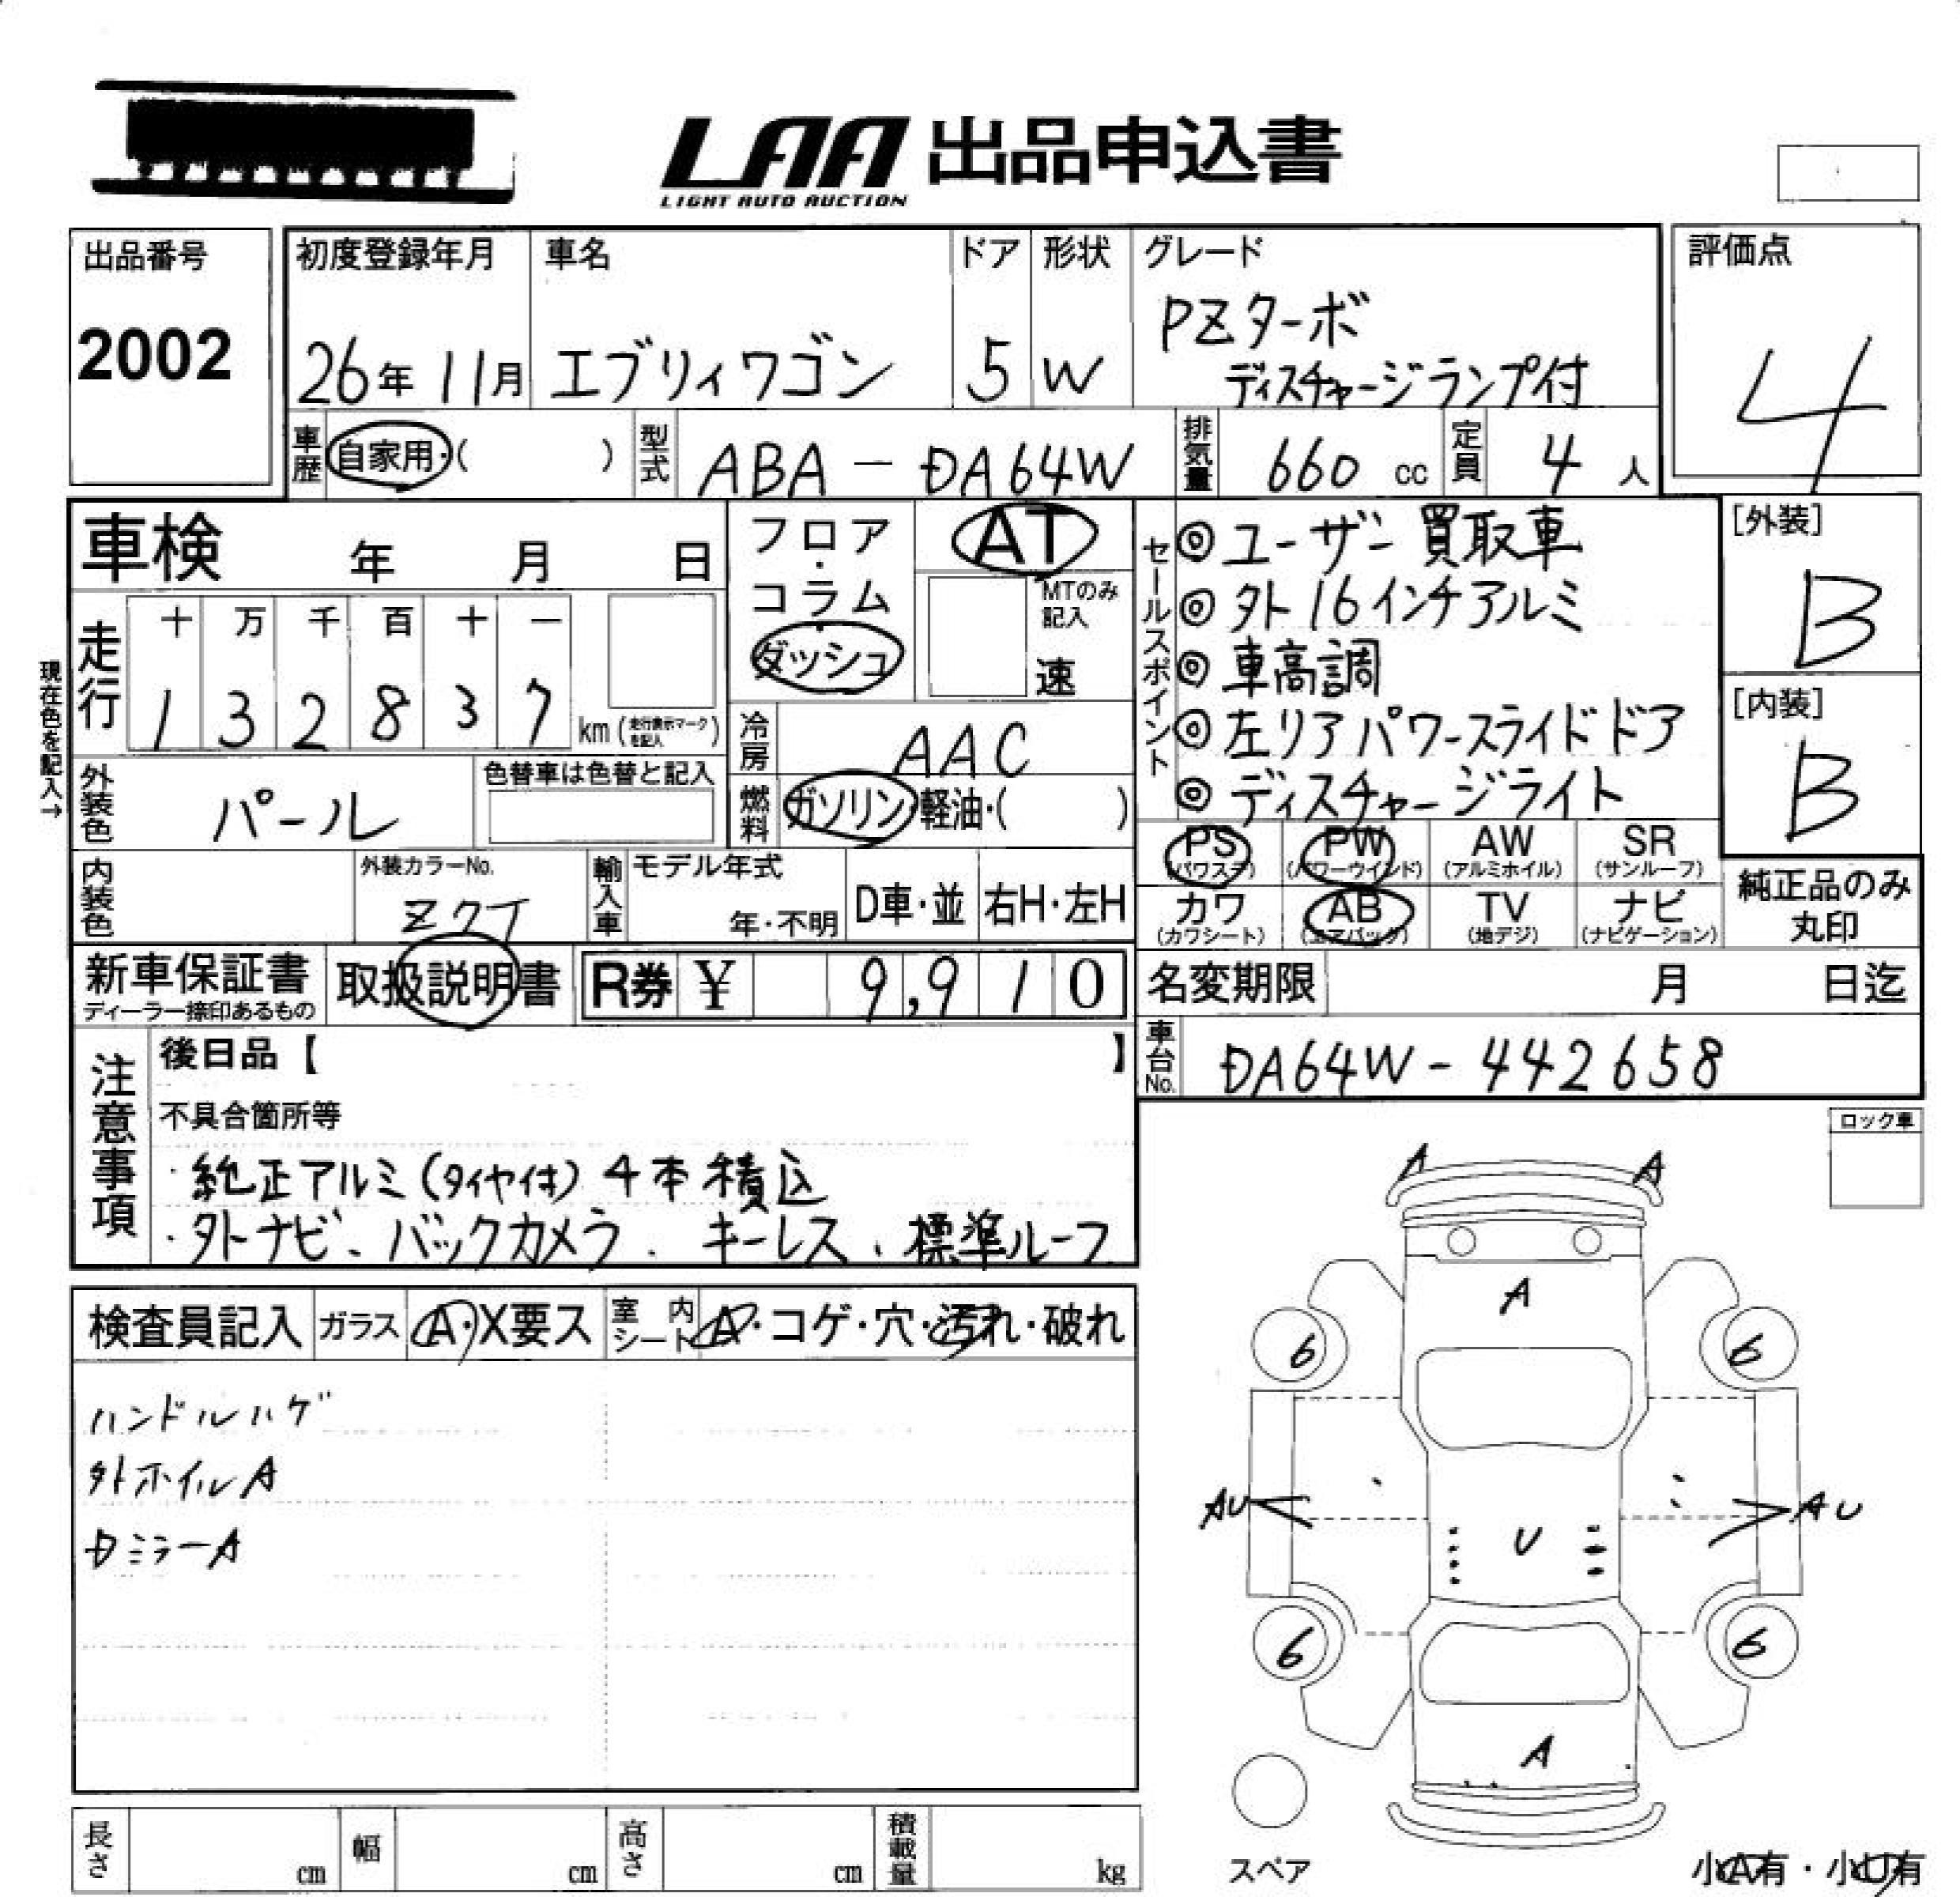 LAA 出品申込書
LIGHT AUTO AUCTION
出品番号
2002
初度登録年月
26年 11月
車名
エブリィワゴン
ドア
5
形状
W
グレード
PZターボ
ディスチャージランプ付
評価点
4
車歴 自家用・( )
型式 ABA - DA64W
排気量 660 cc
定員 4 人
車検 年 月 日
フロア・コラム・ダッシュ
AT
MTのみ記入
速
セールスポイント
◎ユーザー買取車
◎外16インチアルミ
◎車高調
◎左リアパワースライドドア
◎ディスチャージライト
[外装]
B
[内装]
B
現在色を記入→
走行
十 万 千 百 十 一
1 3 2 8 3 7 km (走行表示マークを記入)
冷房 AAC
燃料 ガソリン・軽油・( )
外装色 パール
色替車は色替と記入
内装色
外装カラーNo.
Z7T
輸入車
モデル年式
年・不明
D車・並
右H・左H
PS (パワステ)
PW (パワーウインド)
AW (アルミホイル)
SR (サンルーフ)
カワ (カワシート)
AB (エアバック)
TV (地デジ)
ナビ (ナビゲーション)
純正品のみ丸印
新車保証書
ディーラー捺印あるもの
取扱説明書
R券 ¥ 9,910
名変期限 月 日迄
車台No. DA64W - 442658
注意事項
後日品【 】
不具合箇所等
・純正アルミ(タイヤ付) 4本積込
・外ナビ、バックカメラ、キーレス、標準ルーフ
ロック車
検査員記入
ガラス A・X要ス
室内シート A・コゲ・穴・汚れ・破れ
ハンドルハゲ
外ホイルA
Dミラー A
A A
A
6 6
AU U AU
6 6
A
スペア
小A有・小U有
長さ cm
幅 cm
高さ cm
積載量 kg